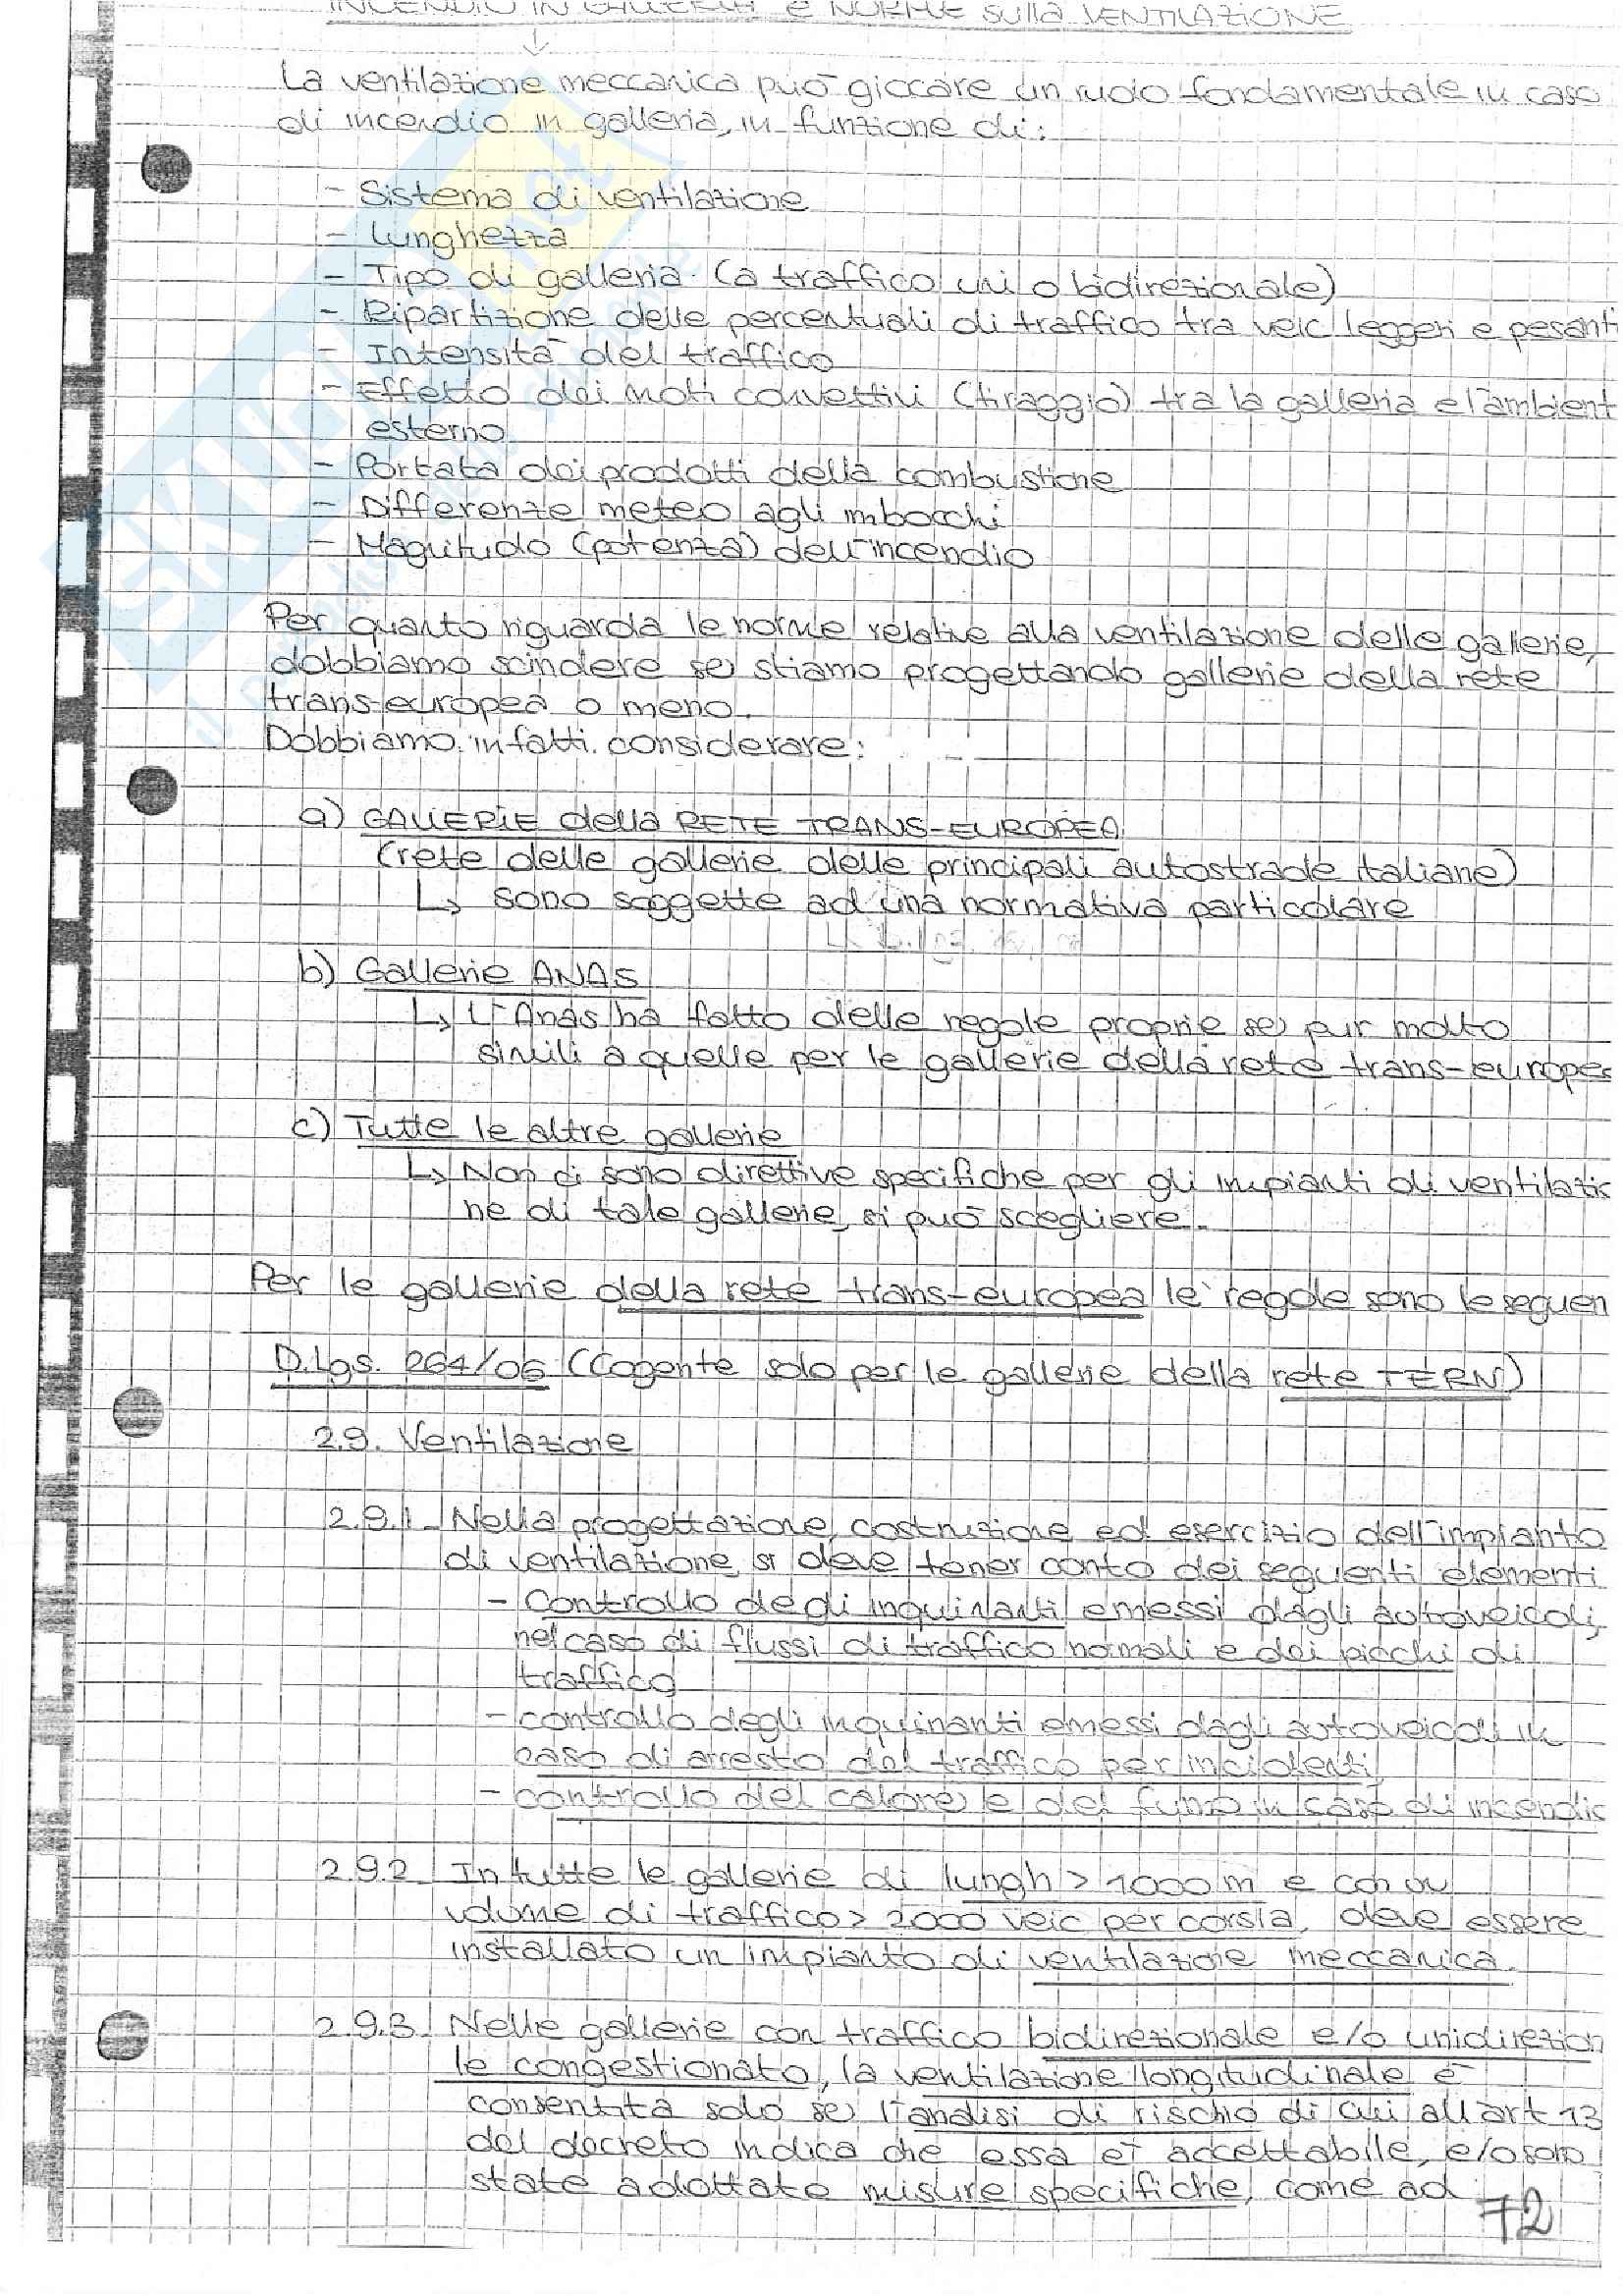 INCENDIO IN GALLERIA e NORME sulla VENTILAZIONE
La ventilazione meccanica può giocare un ruolo fondamentale in caso
di incendio in galleria, in funzione di:
- Sistema di ventilazione
- Lunghezza
- Tipo di galleria (a traffico uni o bidirezionale)
- Ripartizione delle percentuali di traffico tra veic leggeri e pesanti
- Intensità del traffico
- Effetto dei moti convettivi (tiraggio) tra la galleria e l'ambient
esterno
- Portata dei prodotti della combustione
- Differenze meteo agli imbocchi
- Magnitudo (potenza) dell'incendio
Per quanto riguarda le norme relative alla ventilazione delle gallerie,
dobbiamo scindere se stiamo progettando gallerie della rete
trans-europea o meno.
Dobbiamo infatti considerare:
a) GALLERIE della RETE TRANS-EUROPEA
(rete delle gallerie delle principali autostrade italiane)
↳ sono soggette ad una normativa particolare
b) Gallerie ANAS
↳ L'Anas ha fatto delle regole proprie se pur molto
simili a quelle per le gallerie della rete trans-europea
c) Tutte le altre gallerie
↳ Non ci sono direttive specifiche per gli impianti di ventilazio
ne di tale gallerie, si può scegliere.
Per le gallerie della rete trans-europea le regole sono le seguen
D.Lgs. 264/06 (Cogente solo per le gallerie della rete TERN)
2.9. Ventilazione
2.9.1 Nella progettazione, costruzione ed esercizio dell'impianto
di ventilazione, si deve tener conto dei seguenti elementi
- Controllo degli inquinanti emessi dagli autoveicoli,
nel caso di flussi di traffico normali e dei picchi di
traffico
- controllo degli inquinanti emessi dagli autoveicoli in
caso di arresto del traffico per incidenti
- controllo del calore e del fumo in caso di incendio
2.9.2 In tutte le gallerie di lungh > 1000 m e con un
volume di traffico > 2000 veic per corsia, deve essere
installato un impianto di ventilazione meccanica.
2.9.3. Nelle gallerie con traffico bidirezionale e/o unidirezion
le congestionato, la ventilazione longitudinale è
consentita solo se l'analisi di rischio di cui all'art 13
del decreto indica che essa è accettabile, e/o sono
state adottate misure specifiche, come ad
72